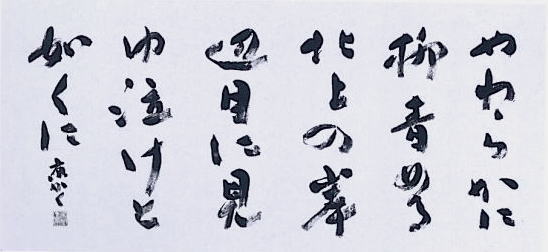 やわらかに
柳青める
北上の岸
辺目に見
ゆ泣けと
如くに